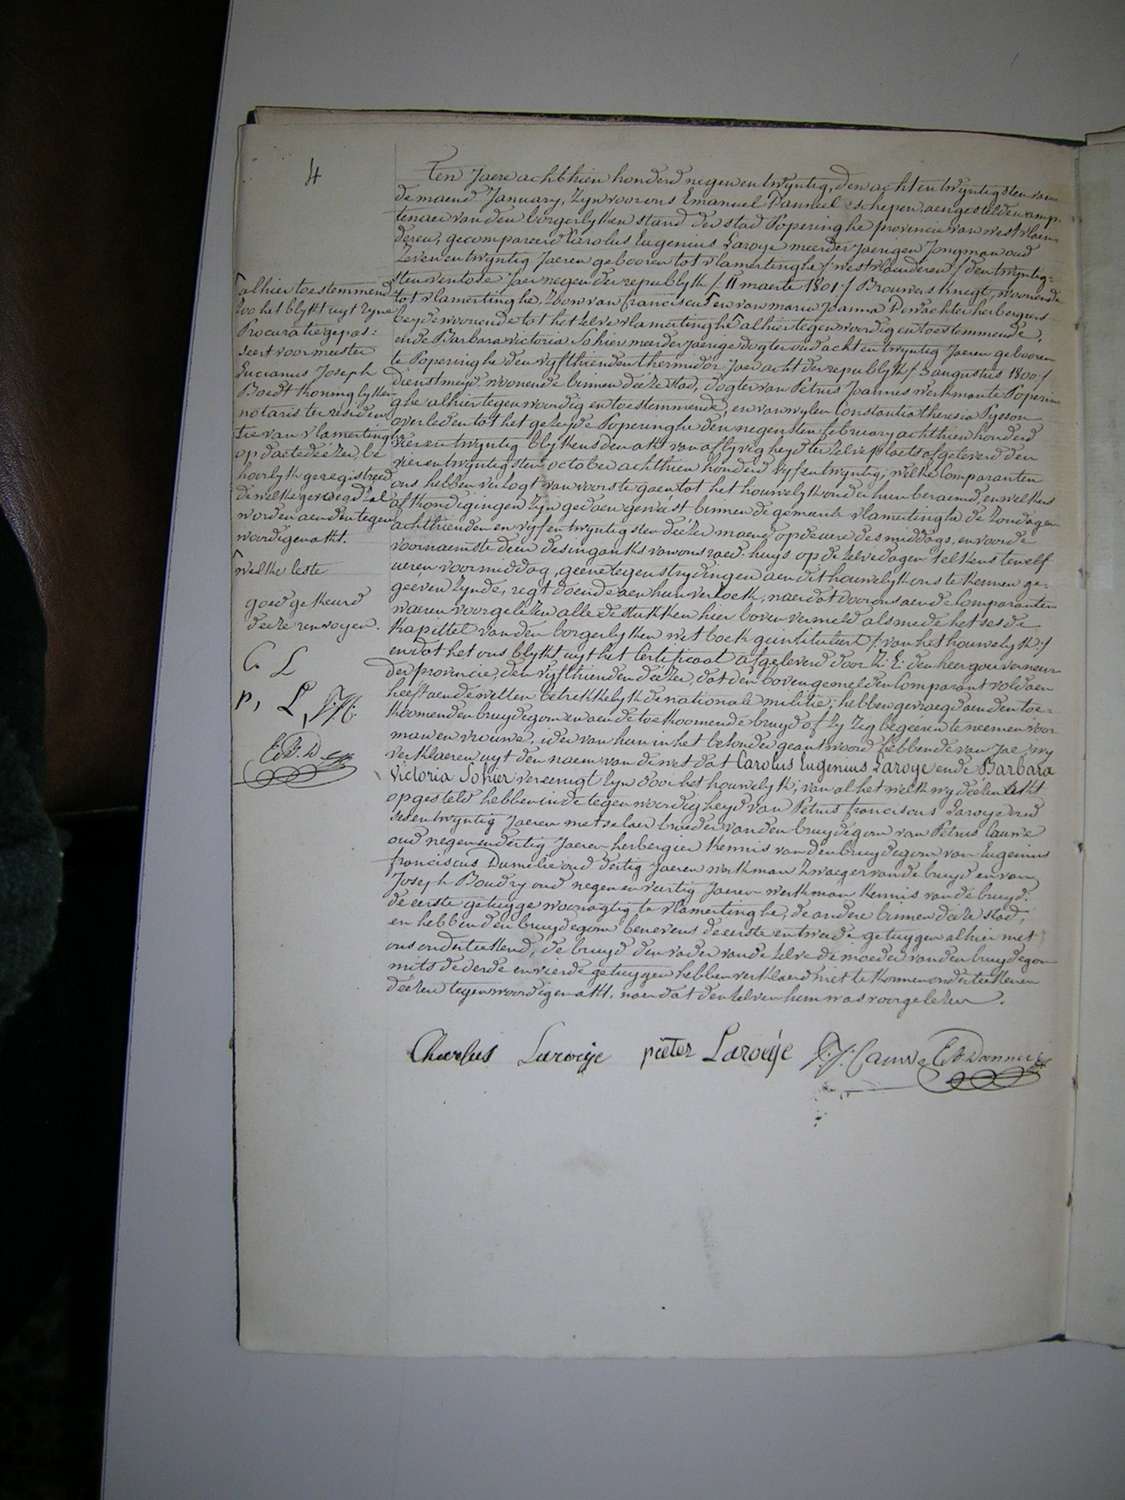 4
Ten Jaere achthien honderd negen en twyntig, den acht en twyntigsten van
de maend January, Zyn voor ons Emanuel Danneel schepen, aengestelden amp-
tenaer van den borgerlyken stand der stad Poperinghe provincie van westvlaen
deren, gecompareerd Carolus Eugenius Laroye meerderjaerigen Jongman oud
Zeven en twyntig Jaeren gebooren tot vlamertinghe /westvlaenderen/ den twyntig-
sten ventose Jaer negen der republyk /11 maerte 1801/ Brouwers knegt, woonende
tot vlamertinghe, Zoon van franciscus en van marie Joanna Dewachter herbergiers
beyde woonende tot het zelve vlamertinghe alhier tegenwoordig en toestemmende,
ende Barbara victoria Sohier meerderjaerige dogter oud acht en twyntig Jaeren gebooren
te Poperinghe den vyfthienden thermidor Jaer acht der republyk / 3 augustus 1800 /
dienstmeyd woonende binnen deeze stad, dogter van Petrus Joannes werkman te Poperin
ghe alhier tegenwoordig en toestemmende, en van wylen Constantia theresia
overleden tot het gezeyde Poperinghe den negensten february achthien honderd
vier en twyntig blykens den akt van aflyvigheyd ter zelve plaets afgeleverd den
vier en twyntigsten october achthien honderd vyf en twyntig; welke Comparanten
ons hebben verzogt van voorts te gaen tot het houwelyk onder hun beraemd, en welkers
afkondigingen zyn gedaen geweest binnen de gemeente vlamertinghe de zondagen
achthienden en vyf en twyntigsten deezer maend op de uere des middags, en voor de
voornaemste deur des ingangs van ons raed-huys op de zelve dagen telkens ten elf
ueren voormiddag, geene tegenstrydingen aen dit houwelyk ons te kennen ge-
geeven zynde, regt doende aen hun verzoek, naer dat door ons aen de Comparanten
waeren voorgelezen alle de stukken hier boven vermeld alsmede het sesde
kapittel van den borgerlyken wet boek geintituleert / van het houwelyk /
en dat het ons blykt uyt het Certificaet afgeleverd door Z: E: den heer gouverneur
der provincie, den vyfthienden deezer, dat den bovengemelden Comparant voldaen
heeft aen de wetten betrekkelyk de nationale militie; hebben gevraegd aen den toe-
koomenden bruydegom en aen de toekoomende bruyd of zy zig begeeren te neemen voor
man en vrouwe, ider van hun in het bezonder geantwoord hebbende van Jae, wy
verklaeren uyt den naem van de wet dat Carolus Eugenius Laroye ende Barbara
Victoria Sohier vereenigt zyn door het houwelyk; van al het welk wy deezen akt
opgesteld hebben in de tegenwoordigheyd van Petrus franciscus Laroye oud
sesentwyntig Jaeren metselaer broeder van den bruydegom van Petrus Cauwe
oud negenendertig Jaeren herbergier kennis van den bruydegom van Eugenius
franciscus oud dertig Jaeren werkman Zwaeger van de bruyd en van
Joseph Boudry oud negen en veertig Jaeren werkman kennis van de bruyd.
de eerste getuyge woonagtig te vlamertinghe, de andere binnen deeze stad,
en hebben den bruydegom benevens de eerste en tweede getuygen alhier met
ons onderteekend, de bruyd den vader van de zelve de moeder van den bruydegom
mits de derde en vierde getuygen hebben verklaerd niet te konnen onderteekenen
deezen tegenwoordigen akt. naer dat den zelven hun was voorgelezen.
alhier toestemmend
zoo het blykt uyt zyne
Procuratie gepas-
seert voor meester
Lucianus Joseph
Boedt koninglyken
notaris te residen
tie van vlamertinghe
op daete deezer, be
hoorlyk geregistreed
de welke gevoegd zal
worden aen den tegen
woordigen akt.
welke leste
goed gekeurd
deeze renvoyen.
C. L
p, L,
Charlus Laroeije pieter Laroeije Cauwe